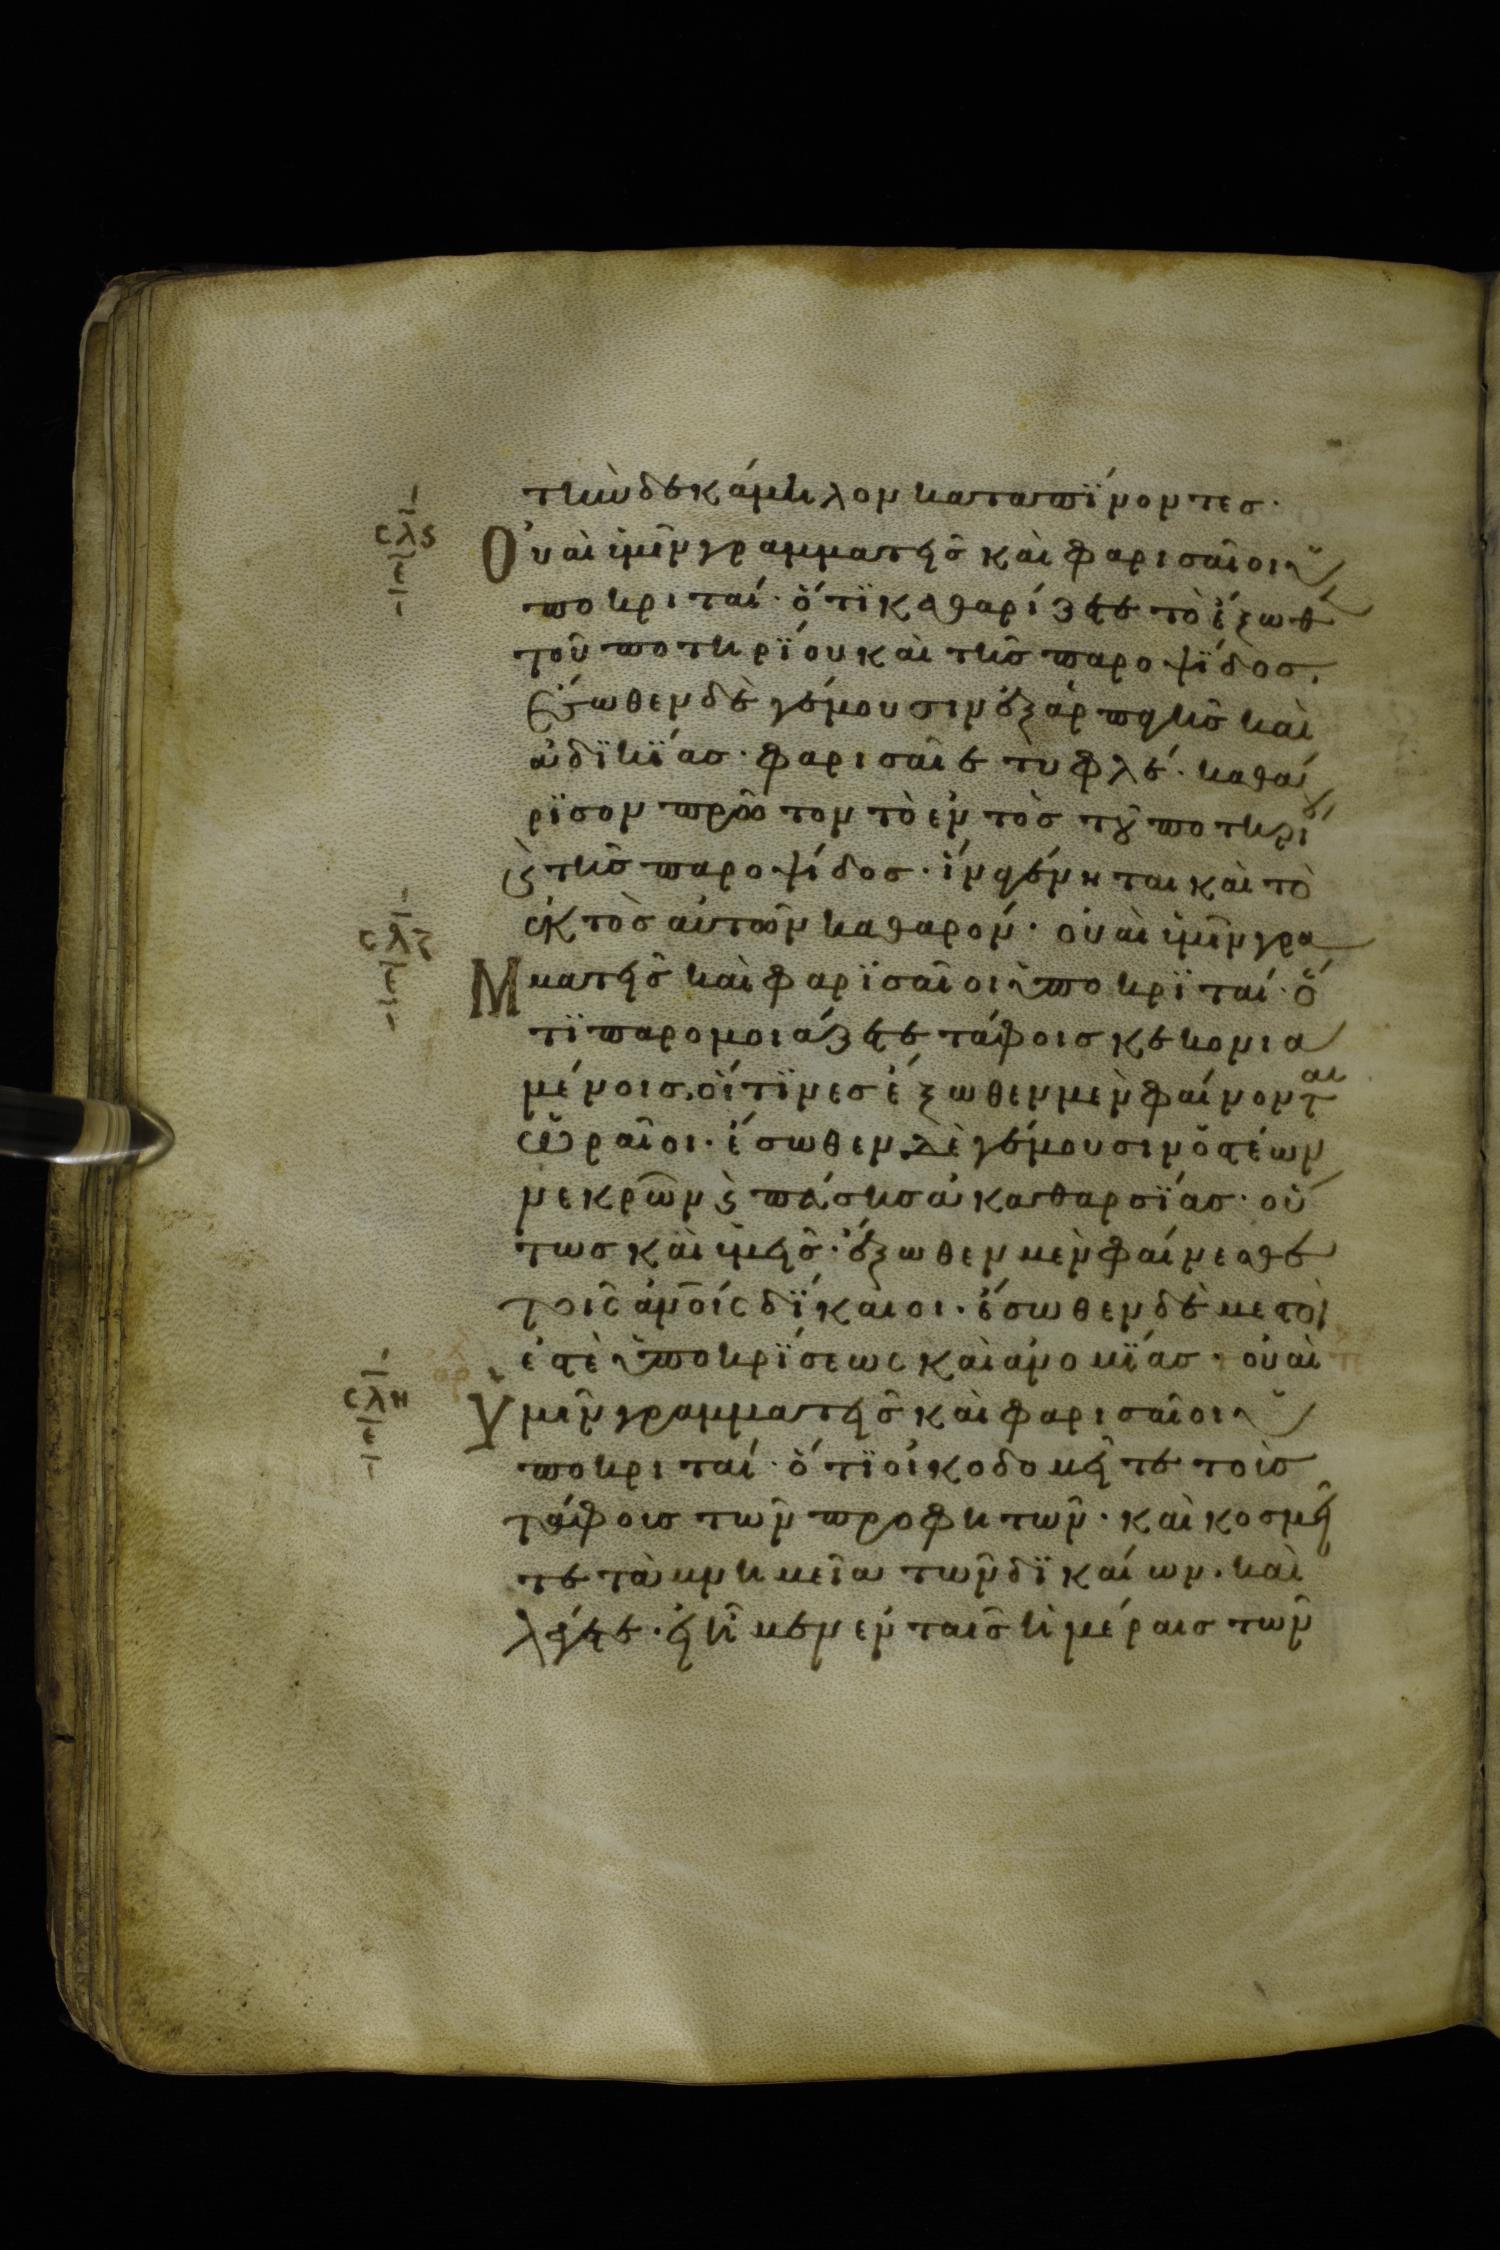 τὴν δὲ κάμηλον καταπΐνοντες·
σλϛ
ε
Οὐαὶ ὑμῖν γραμματεῖς καὶ φαρισαῖοι ὑ
ποκριταί· ὅτϊ καθαρίζετε τὸ ἔξωθ
τοῦ ποτηρΐου καὶ τῆς παροψΐδος.
Ἔσωθεν δὲ γέμουσιν ἐξ ἁρπαγῆς καὶ
ἀδϊκΐας· φαρισαῖε τυφλέ· καθά
ρϊσον πρῶτον τὸ ἐντὸς τοῦ ποτηρίου
ϗ τῆς παροψίδος· ἵνα γένηται καὶ τὸ
ἐκτὸς αὐτῶν καθαρόν· οὐαὶ ὑμῖν γρα
σλζ
ε
Μματεῖς καὶ φαρϊσαῖοι ὑποκρϊταί· ὅ
τϊ παρομοιάζετε τάφοις κεκονια
μένοις· οἵτϊνες ἔξωθεν μὲν φαίνονται
ὡραῖοι· ἔσωθεν δὲ γέμουσιν ὀστέων
νεκρῶν ϗ πάσης ἀκαθαρσΐας· οὕ
τως καὶ ὑμεῖς· ἔξωθεν μὲν φαίνεσθε
τοῖς ἀνοις δΐκαιοι· ἔσωθεν δὲ μεστοὶ
ἐστὲ ὑποκρΐσεως καὶ ἀνομΐας· οὐαὶ
σλη
ε
Ὑμῖν γραμματεῖς καὶ φαρισαῖοι ὑ
ποκριταί· ὅτϊ οἰκοδομεῖτε τοὶς
τάφοις τῶν προφητῶν· καὶ κοσμεῖ
τε τὰ μνημεῖα τῶν δϊκαίων· καὶ
λέγετε· εἰ ἦμεν ἐν ταῖς ἡμέραις τῶν